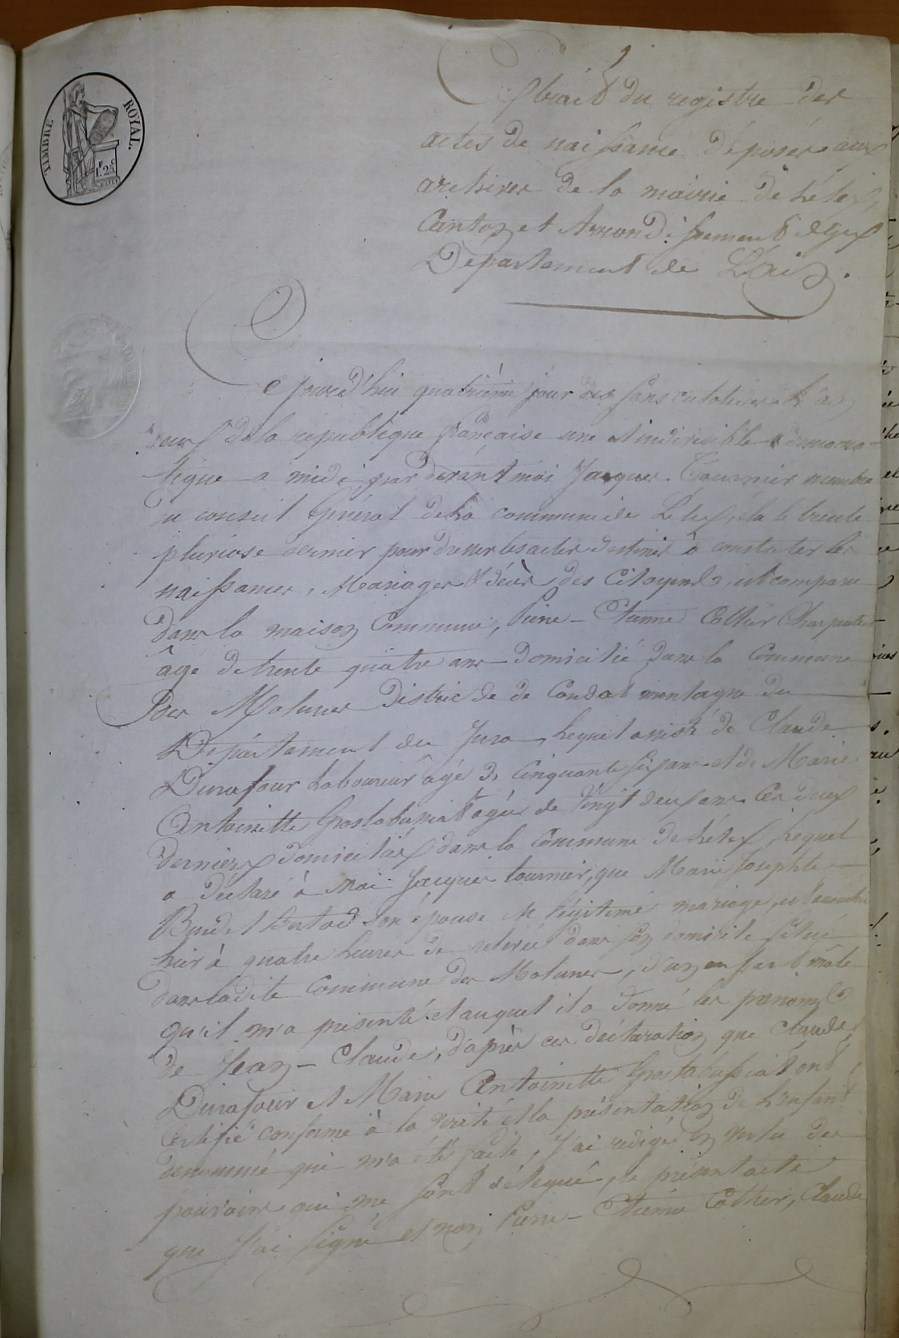 TIMBRE ROYAL.
1f. 25c
Extrait du registre des
actes de naissance déposés aux
archives de la mairie de Lélex,
Canton et Arrondissement de Gex
Département de L'ain.
Ce jourd'hui quatrième jour des sans culotides l'an
deux de la republique française une et indivisible & démocra-
tique a midi, par devant moi Jacques Tournier membre
du conseil Général de la commune de Lélex, élu le trente
pluviose dernier pour dresser les actes destinés à constater les
naissances, Mariages & décès des Citoyens, est comparu
dans la maison Commune, Pierre-Etienne Cottier Charpentier
âgé de trente quatre ans domicilié dans la Commune
Des Molunes District de Condat montagne du
Département du Jura, lequel assisté de Claude
Durafour Laboureur âgé de Cinquante six ans et de Marie
Antoinette agée de Vingt deux ans Ces deux
derniers domiciliés dans la Commune de Lélex, lequel
a déclaré à Moi Jacques tournier, que Marie Josephte
son épouse en légitime mariage, est accouchée
hier à quatre heures de relevée dans son domicile situé
dans ladite Commune des Molunes, d'un enfant mâle
qu'il m'a présenté et auquel il a donné les prenoms
de Jean-Claude, d'après ces declaration que Claude
Durafour & Marie Antoinette ont
certifié conforme à la verité & la présentation de l'enfant
denommé qui m'a été faite, J'ai redigé en vertu des
pouvoirs qui me sont délegués, le présent acte
que J'ai signé et non Pierre-Etienne Cottier, Claude